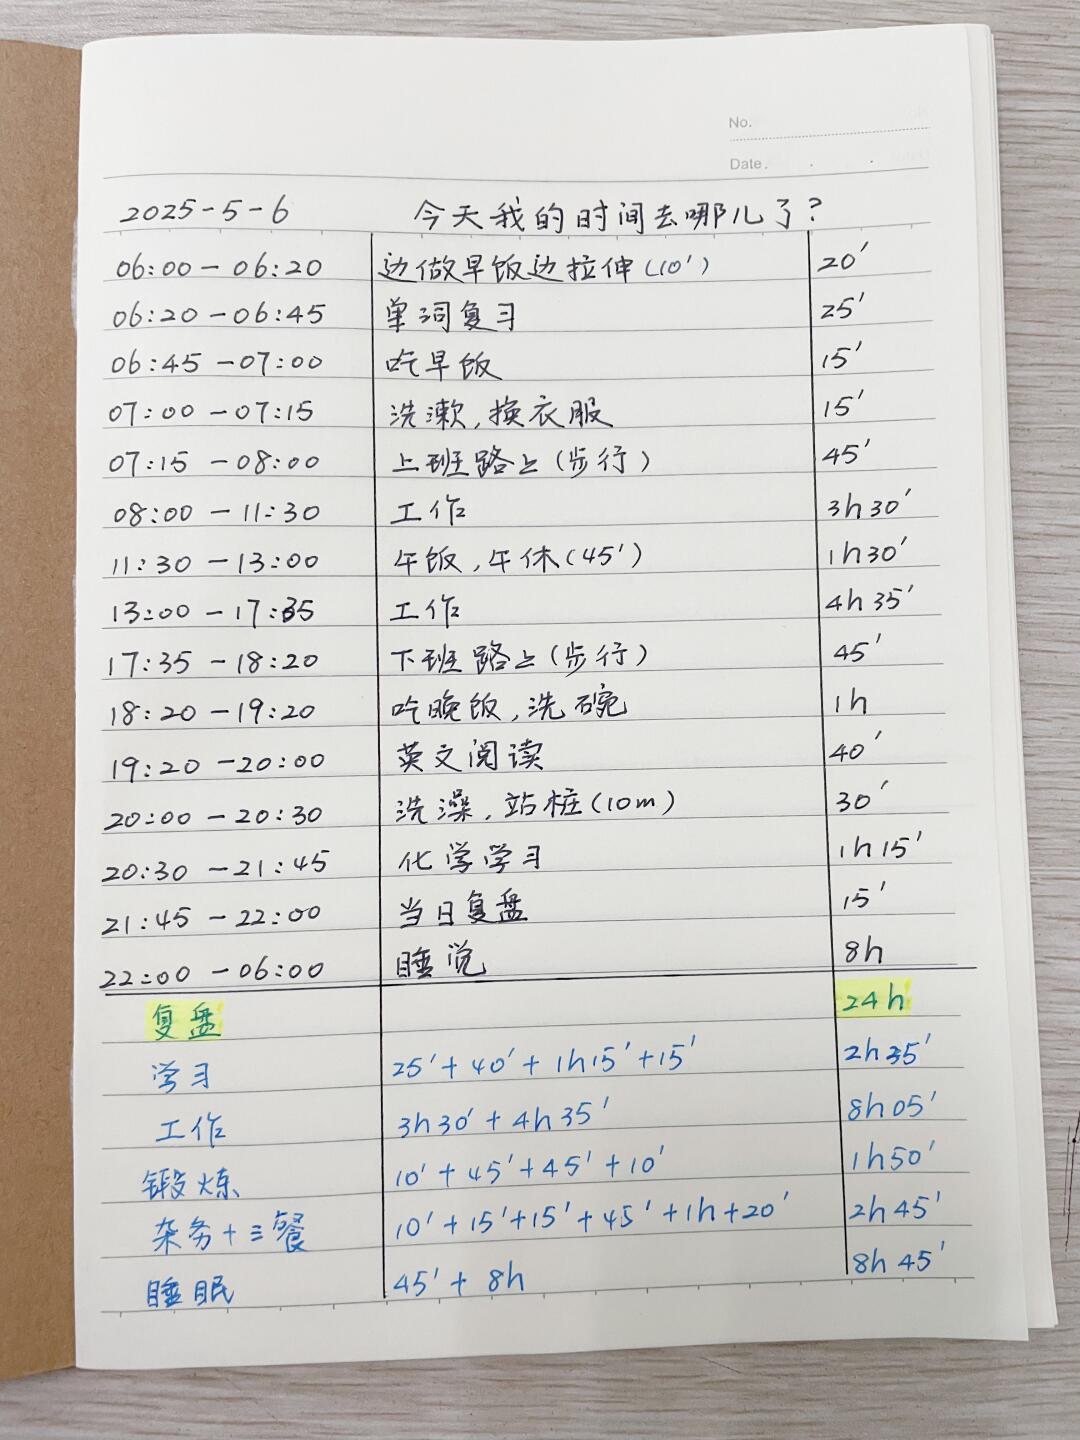 No.
Date. . .
2025-5-6 今天我的时间去哪儿了?
06:00-06:20 边做早饭边拉伸(10′) 20′
06:20-06:45 单词复习 25′
06:45-07:00 吃早饭 15′
07:00-07:15 洗漱,换衣服 15′
07:15-08:00 上班路上(步行) 45′
08:00-11:30 工作 3h30′
11:30-13:00 午饭,午休(45′) 1h30′
13:00-17:35 工作 4h35′
17:35-18:20 下班路上(步行) 45′
18:20-19:20 吃晚饭,洗碗 1h
19:20-20:00 英文阅读 40′
20:00-20:30 洗澡,站桩(10m) 30′
20:30-21:45 化学学习 1h15′
21:45-22:00 当日复盘 15′
22:00-06:00 睡觉 8h
复盘 24h
学习 25′+40′+1h15′+15′ 2h35′
工作 3h30′+4h35′ 8h05′
锻炼 10′+45′+45′+10′ 1h50′
杂务+三餐 10′+15′+15′+45′+1h+20′ 2h45′
睡眠 45′+8h 8h45′